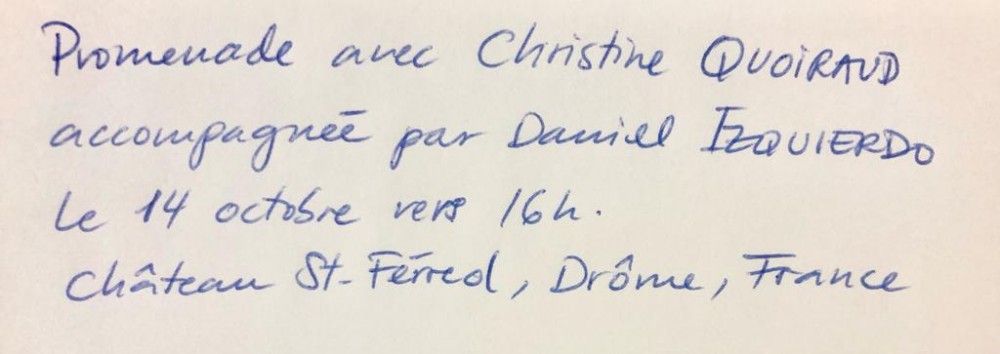 Promenade avec Christine QUOIRAUD
accompagnée par Daniell IZQUIERDO
le 14 octobre vers 16h.
Château St-Férreol, Drôme, France